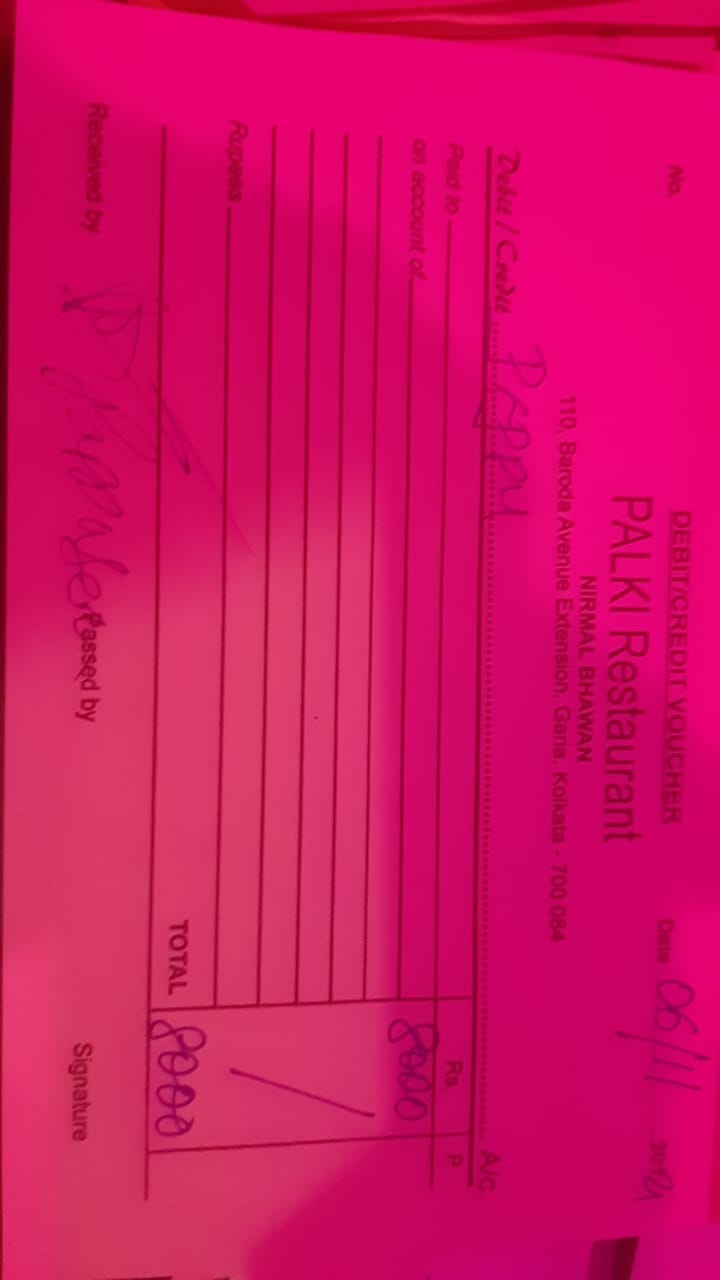 DEBIT/CREDIT VOUCHER
No.
PALKI Restaurant
Date 06/11 2024
NIRMAL BHAWAN
110, Baroda Avenue Extension, Garia, Kolkata - 700 084
Debit / Credit Pappu A/c.
Paid to Rs P
on account of 8000
Rupees
TOTAL 8000
Received by Passed by Signature